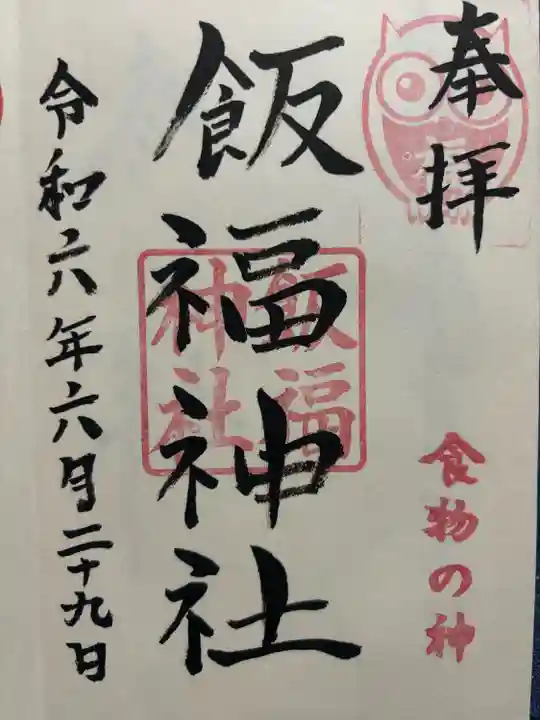 奉拝
食物の神
飯福神社
飯福
神社
令和六年六月二十九日